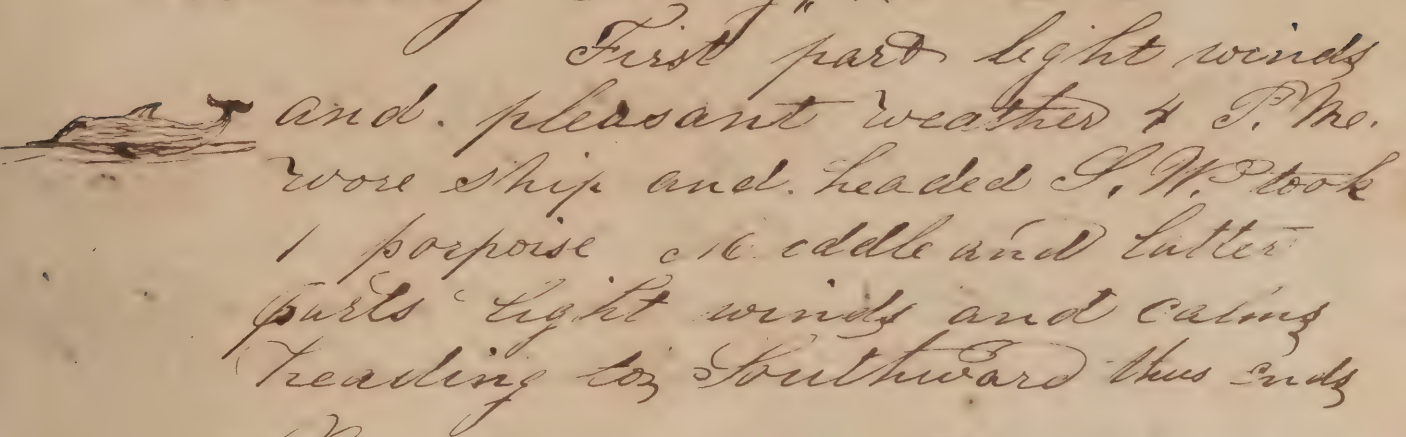 First part light winds
and. pleasant weather 4 P. M.
wore ship and. headed S. W. took
1 porpoise Middle and latter
parts light winds and calms
heading to Southward thus ends